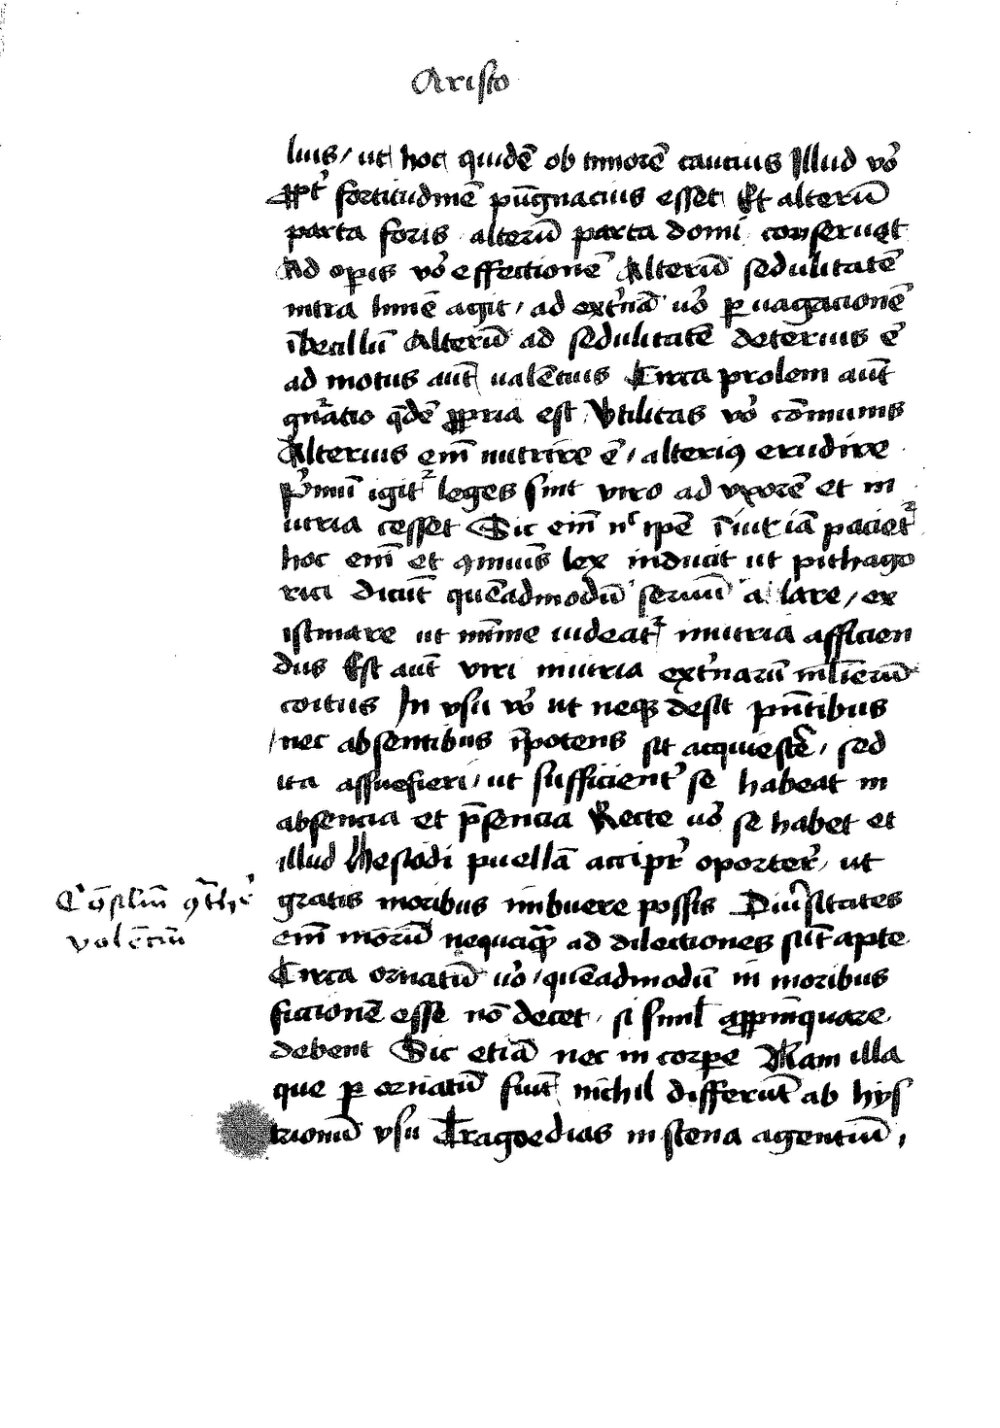 Aristo
lius / ut hoc quidē ob timorē cautius Illud vo᷒
ꝓpt᷒ fortitudinē pūgnacius esset Et alterū
parta foris alterū parta domi conseruet
Ad opis vo᷒ effectionē Alterū sedulitatē
intra limē agit / ad ext᷒nā uo᷒ ꝑuagacionē
ībecillū Alterū ad sedulitatē deterius ē
ad motus aut̄ ualētius Circa prolem aut̄
gn̄atio qd̄ē ꝓpria est Vtilitas vo᷒ cōmunis
Alterius em̄ nutrire ē / alteriꝰ erudire
P᷒mū igit᷑ leges sint viro ad vxorē et in
iuria cesset Sic em̄ n ipē iniuriā paciet᷑
hoc em̄ et ꝯmunis lex inducit ut pithago
rici dicūt quēadmodū seruū a lare / ex
istimare ut minime iudeat᷑ iniuria afficien
dus Est aut̄ viri iniuria ext᷒narū mulierū
coitus In vsu vo᷒ ut neqꝫ desit pn̄tibus
/ nec absentibus īpotens sit acquiescē᷒ / sed
ita assuefieri / ut sufficient᷒ se habeat in
absencia et p̄sencia Recte uo᷒ se habet et
illud Hesiodi puellā accipe᷒ oporter᷒ / ut
gratis moribus imbuere possis Diu᷒sitates
em̄ morū nequaqꝫ ad dilectiones sūt apte
Circa ornatū uo᷒ / quēadmodū in moribus
fictionē esse nō decet / si simul appīnquare
debent Sic etiā nec in corpe Nam illa
que ꝑ ornatū fiūt nichil differūt ab hys
trionū vsu Tragoedias in scena agentiū /
volētiū